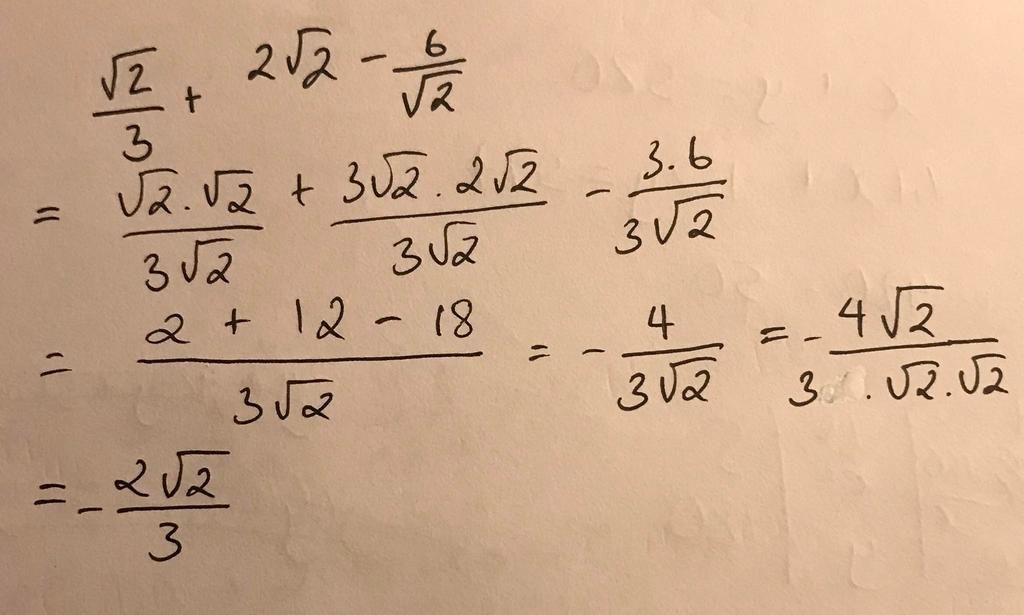 √2/3 + 2√2 - 6/√2
= √2.√2/3√2 + 3√2.2√2/3√2 - 3.6/3√2
= 2 + 12 - 18/3√2 = - 4/3√2 = - 4√2/3.√2.√2
= - 2√2/3